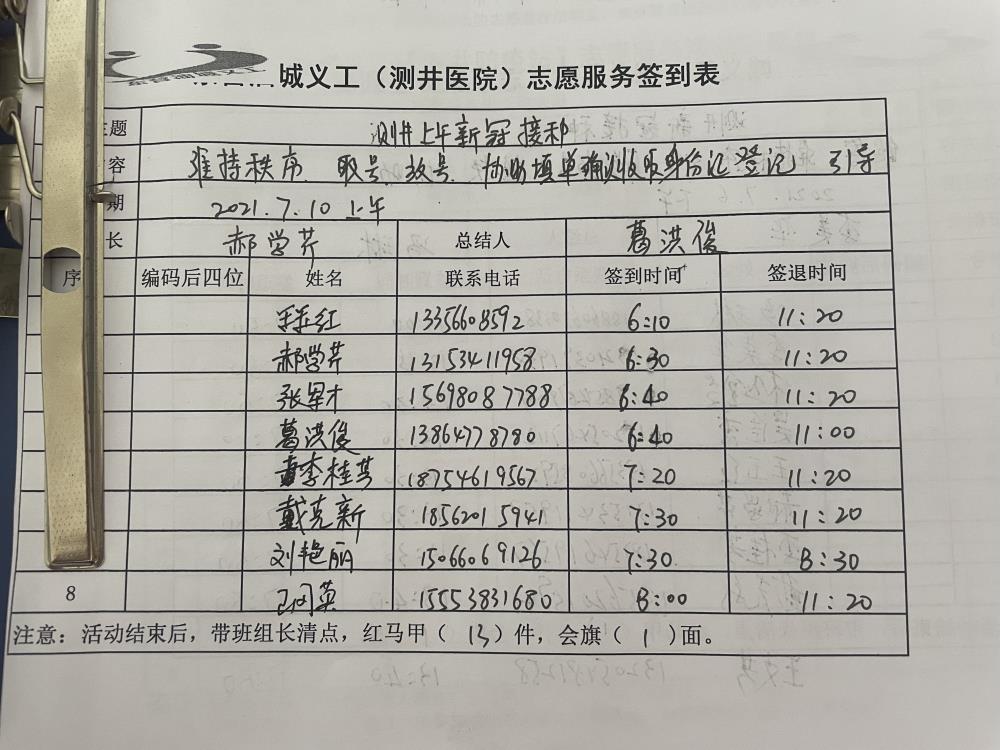 城义工（测井医院）志愿服务签到表
主题 测井上午新冠接种
容 维持秩序 取号 放号 协助填单确认收取身份证登记 引导
期 2021.7.10 上午
长 郝学芹 总结人 葛洪俊
序 编码后四位 姓名 联系电话 签到时间 签退时间
红 13356608592 6:10 11:20
郝学芹 13153411958 6:30 11:20
张军才 15698087788 6:40 11:20
葛洪俊 13864778780 6:40 11:00
李桂芳 18754619567 7:20 11:20
戴克新 18562015941 7:30 11:20
刘艳丽 15066069126 7:30 8:30
8 英 15553831680 8:00 11:20
注意：活动结束后，带班组长清点，红马甲（13）件，会旗（1）面。